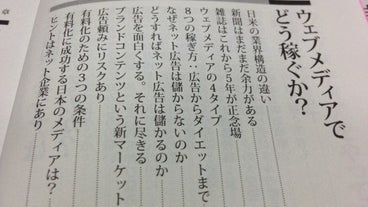 ウェブメディアで
どう稼ぐか?
日米の業界構造の違い
新聞はまだまだ余力がある
雑誌はこれから5年が正念場
ウェブメディアの4タイプ
8つの稼ぎ方:広告からダイエットまで
なぜネット広告は儲からないのか
どうすればネット広告は儲かるのか
広告を面白くする。それに尽きる
ブランドコンテンツという新マーケット
広告頼みにリスクあり
有料化のための3つの条件
有料化に成功する日本のメディアは?
ヒントはネット企業にあり
章